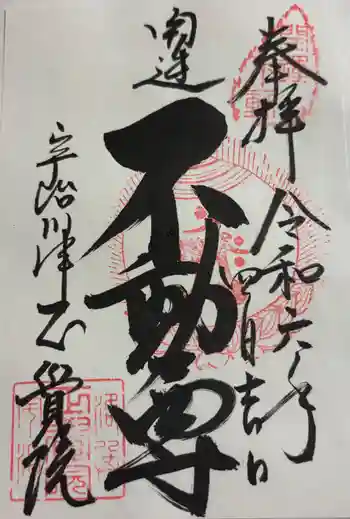 奉拝
令和六年
四月吉日
開運
不動尊
宇治川津正覚院